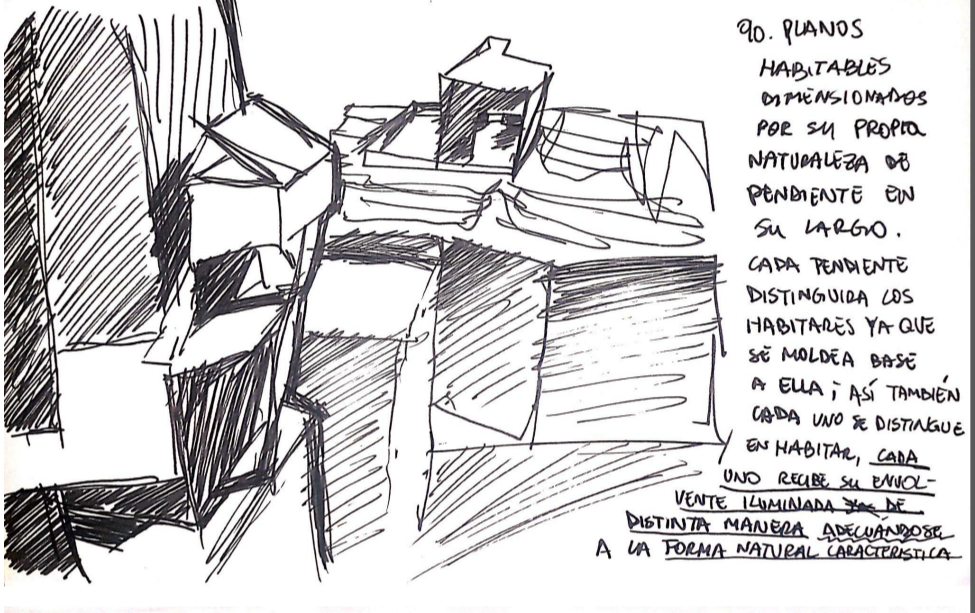 90. PLANOS
HABITABLES
DIMENSIONADOS
POR SU PROPIA
NATURALEZA DE
PENDIENTE EN
SU LARGO.
CADA PENDIENTE
DISTINGUIRA LOS
HABITARES YA QUE
SE MOLDEA BASE
A ELLA; ASÍ TAMBIÉN
CADA UNO SE DISTINGUE
EN HABITAR, CADA
UNO RECIBE SU ENVOL-
VENTE ILUMINADA DE
DISTINTA MANERA ADECUÁNDOSE
A LA FORMA NATURAL CARACTERISTICA